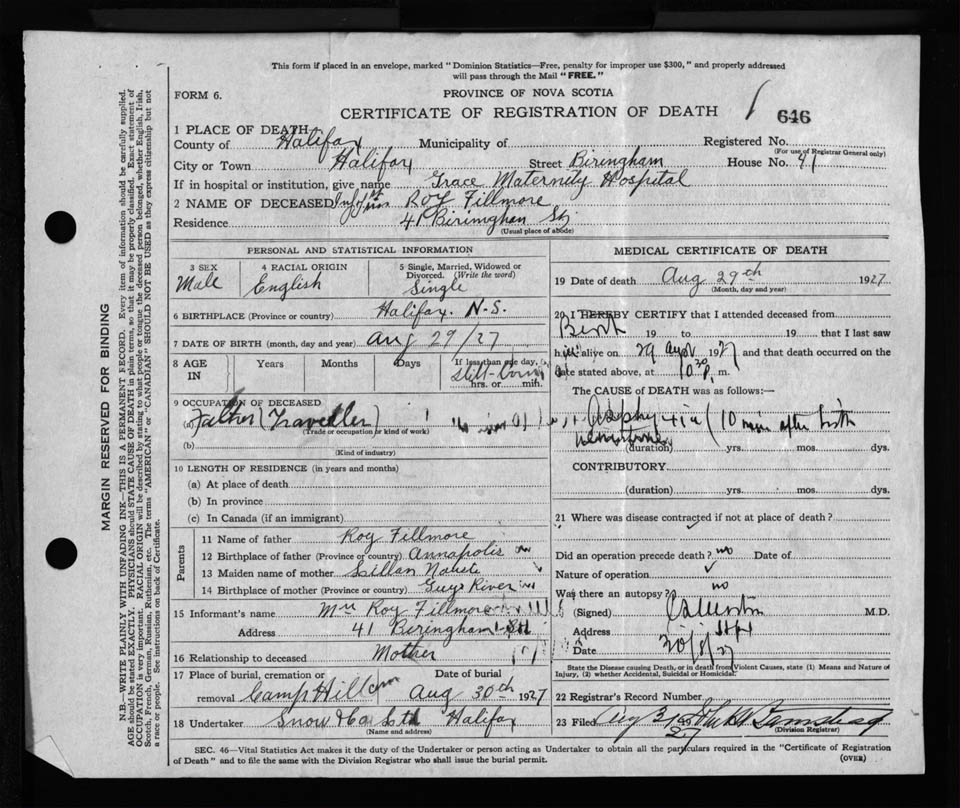 This form if placed in an envelope, marked "Dominion Statistics—Free, penalty for improper use $300," and properly addressed
will pass through the Mail "FREE."
FORM 6.
PROVINCE OF NOVA SCOTIA
CERTIFICATE OF REGISTRATION OF DEATH
646
1 PLACE OF DEATH
County of Halifax Municipality of Registered No.
(For use of Registrar General only)
City or Town Halifax Street Biringham House No. 41
If in hospital or institution, give name Grace Maternity Hospital
2 NAME OF DECEASED Roy Fillmore
Residence 41 Birimghan St
(Usual place of abode)
PERSONAL AND STATISTICAL INFORMATION
3 SEX 4 RACIAL ORIGIN 5 Single, Married, Widowed or Divorced. (Write the word)
Male English Single
6 BIRTHPLACE (Province or country) Halifax. N.S.
7 DATE OF BIRTH (month, day and year) Aug 29/27
8 AGE IN Years Months Days If less than one day,
Still-born
hrs. or min.
9 OCCUPATION OF DECEASED
(a) Father (Traveller)
(Trade or occupation or kind of work)
(b)
(Kind of industry)
10 LENGTH OF RESIDENCE (in years and months)
(a) At place of death
(b) In province
(c) In Canada (if an immigrant)
Parents
11 Name of father Roy Fillmore
12 Birthplace of father (Province or country) Annapolis
13 Maiden name of mother Lillan
14 Birthplace of mother (Province or country) Guys River
15 Informant's name Mrs Roy Fillmore
Address 41 Biringham St
16 Relationship to deceased Mother
17 Place of burial, cremation or removal Date of burial
Camp Hill Cem Aug 30th 1927
18 Undertaker Snow & Co Ltd Halifax
(Name and address)
MEDICAL CERTIFICATE OF DEATH
19 Date of death Aug 29th 1927
(Month, day and year)
20 I HEREBY CERTIFY that I attended deceased from
Birth 19 to 19 that I last saw
h alive on 29 Augt 1927 and that death occurred on the
date stated above, at 10 30 P. m.
The CAUSE of DEATH was as follows:—
(10 min after birth
(duration) yrs. mos. dys.
CONTRIBUTORY
(duration) yrs. mos. dys.
21 Where was disease contracted if not at place of death?
Did an operation precede death? no Date of
Nature of operation
Was there an autopsy? no
(Signed) M.D.
Address
Date 30/8/27
State the Disease causing Death, or in death from Violent Causes, state (1) Means and Nature of
Injury, (2) whether Accidental, Suicidal or Homicidal.
22 Registrar's Record Number
23 Filed Aug 31
(Division Registrar)
SEC. 46—Vital Statistics Act makes it the duty of the Undertaker or person acting as Undertaker to obtain all the particulars required in the "Certificate of Registration
of Death" and to file the same with the Division Registrar who shall issue the burial permit.
(OVER)
MARGIN RESERVED FOR BINDING
N.B.—WRITE PLAINLY WITH UNFADING INK—THIS IS A PERMANENT RECORD. Every item of information should be carefully supplied.
AGE should be stated EXACTLY. PHYSICIANS should STATE CAUSE OF DEATH in plain terms, so that it may be properly classified. Exact statement of
OCCUPATION is very important. RACIAL ORIGIN will be described by stating to what people or tongue the deceased person belonged, whether English, Irish,
Scotch, French, German, Russian, Ruthenian, etc. The terms "AMERICAN" or "CANADIAN" SHOULD NOT BE USED as they express citizenship but not
a race or people. See instructions on back of Certificate.